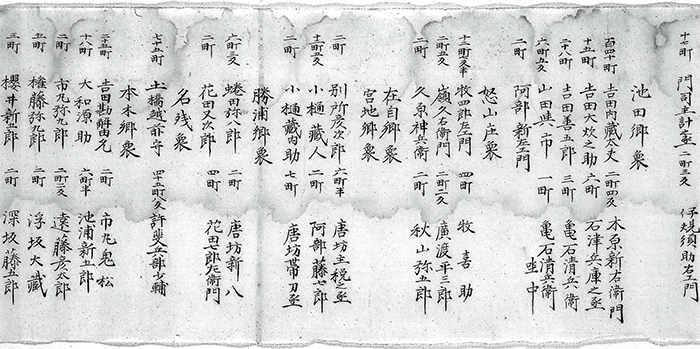 十七町 門司主計允 二町三反 伊規須助左エ門
池田郷衆
百四十町 吉田内藏太夫 二町四反 木原新右衛門
十五町 吉田大炊之助 六町 石津兵庫之丞
二十八町 吉田善五郎 三町 亀石清兵衛
六町五反 山田與市 一町 亀石清兵衛
坐中
二町 阿部新左エ門
怒山庄衆
牧四郎左エ門 四町 牧喜助
二町五反 嶺久右衛門 二町二反 廣渡平三郎
二町 久原神兵衛 二町 秋山弥五郎
在自郷衆
宮地郷衆
二町 別所彦次郎 六町半 唐坊主税之丞
十一町五反 小樋藏人 二町 阿部藤七郎
二町 小樋藏内助 七町 唐坊帯刀丞
勝浦郷衆
六町三反 蜷田弥二郎 二町 唐坊新八
二町 花田又次郎 四町 花田七郎左衛門
名残衆
七十五町 土橋越前守 四十五町六反 許斐兵部少輔
本木郷衆
二十五町 吉田勘解由允 二町 市丸鬼松
十八町 大和源助 六町半 池浦新五郎
二町 市丸弥九郎 二町二反 遠藤彦太郎
五町 権藤弥九郎 三町 浮坂大藏
三町 櫻井新五郎 二町 深坂藤五郎